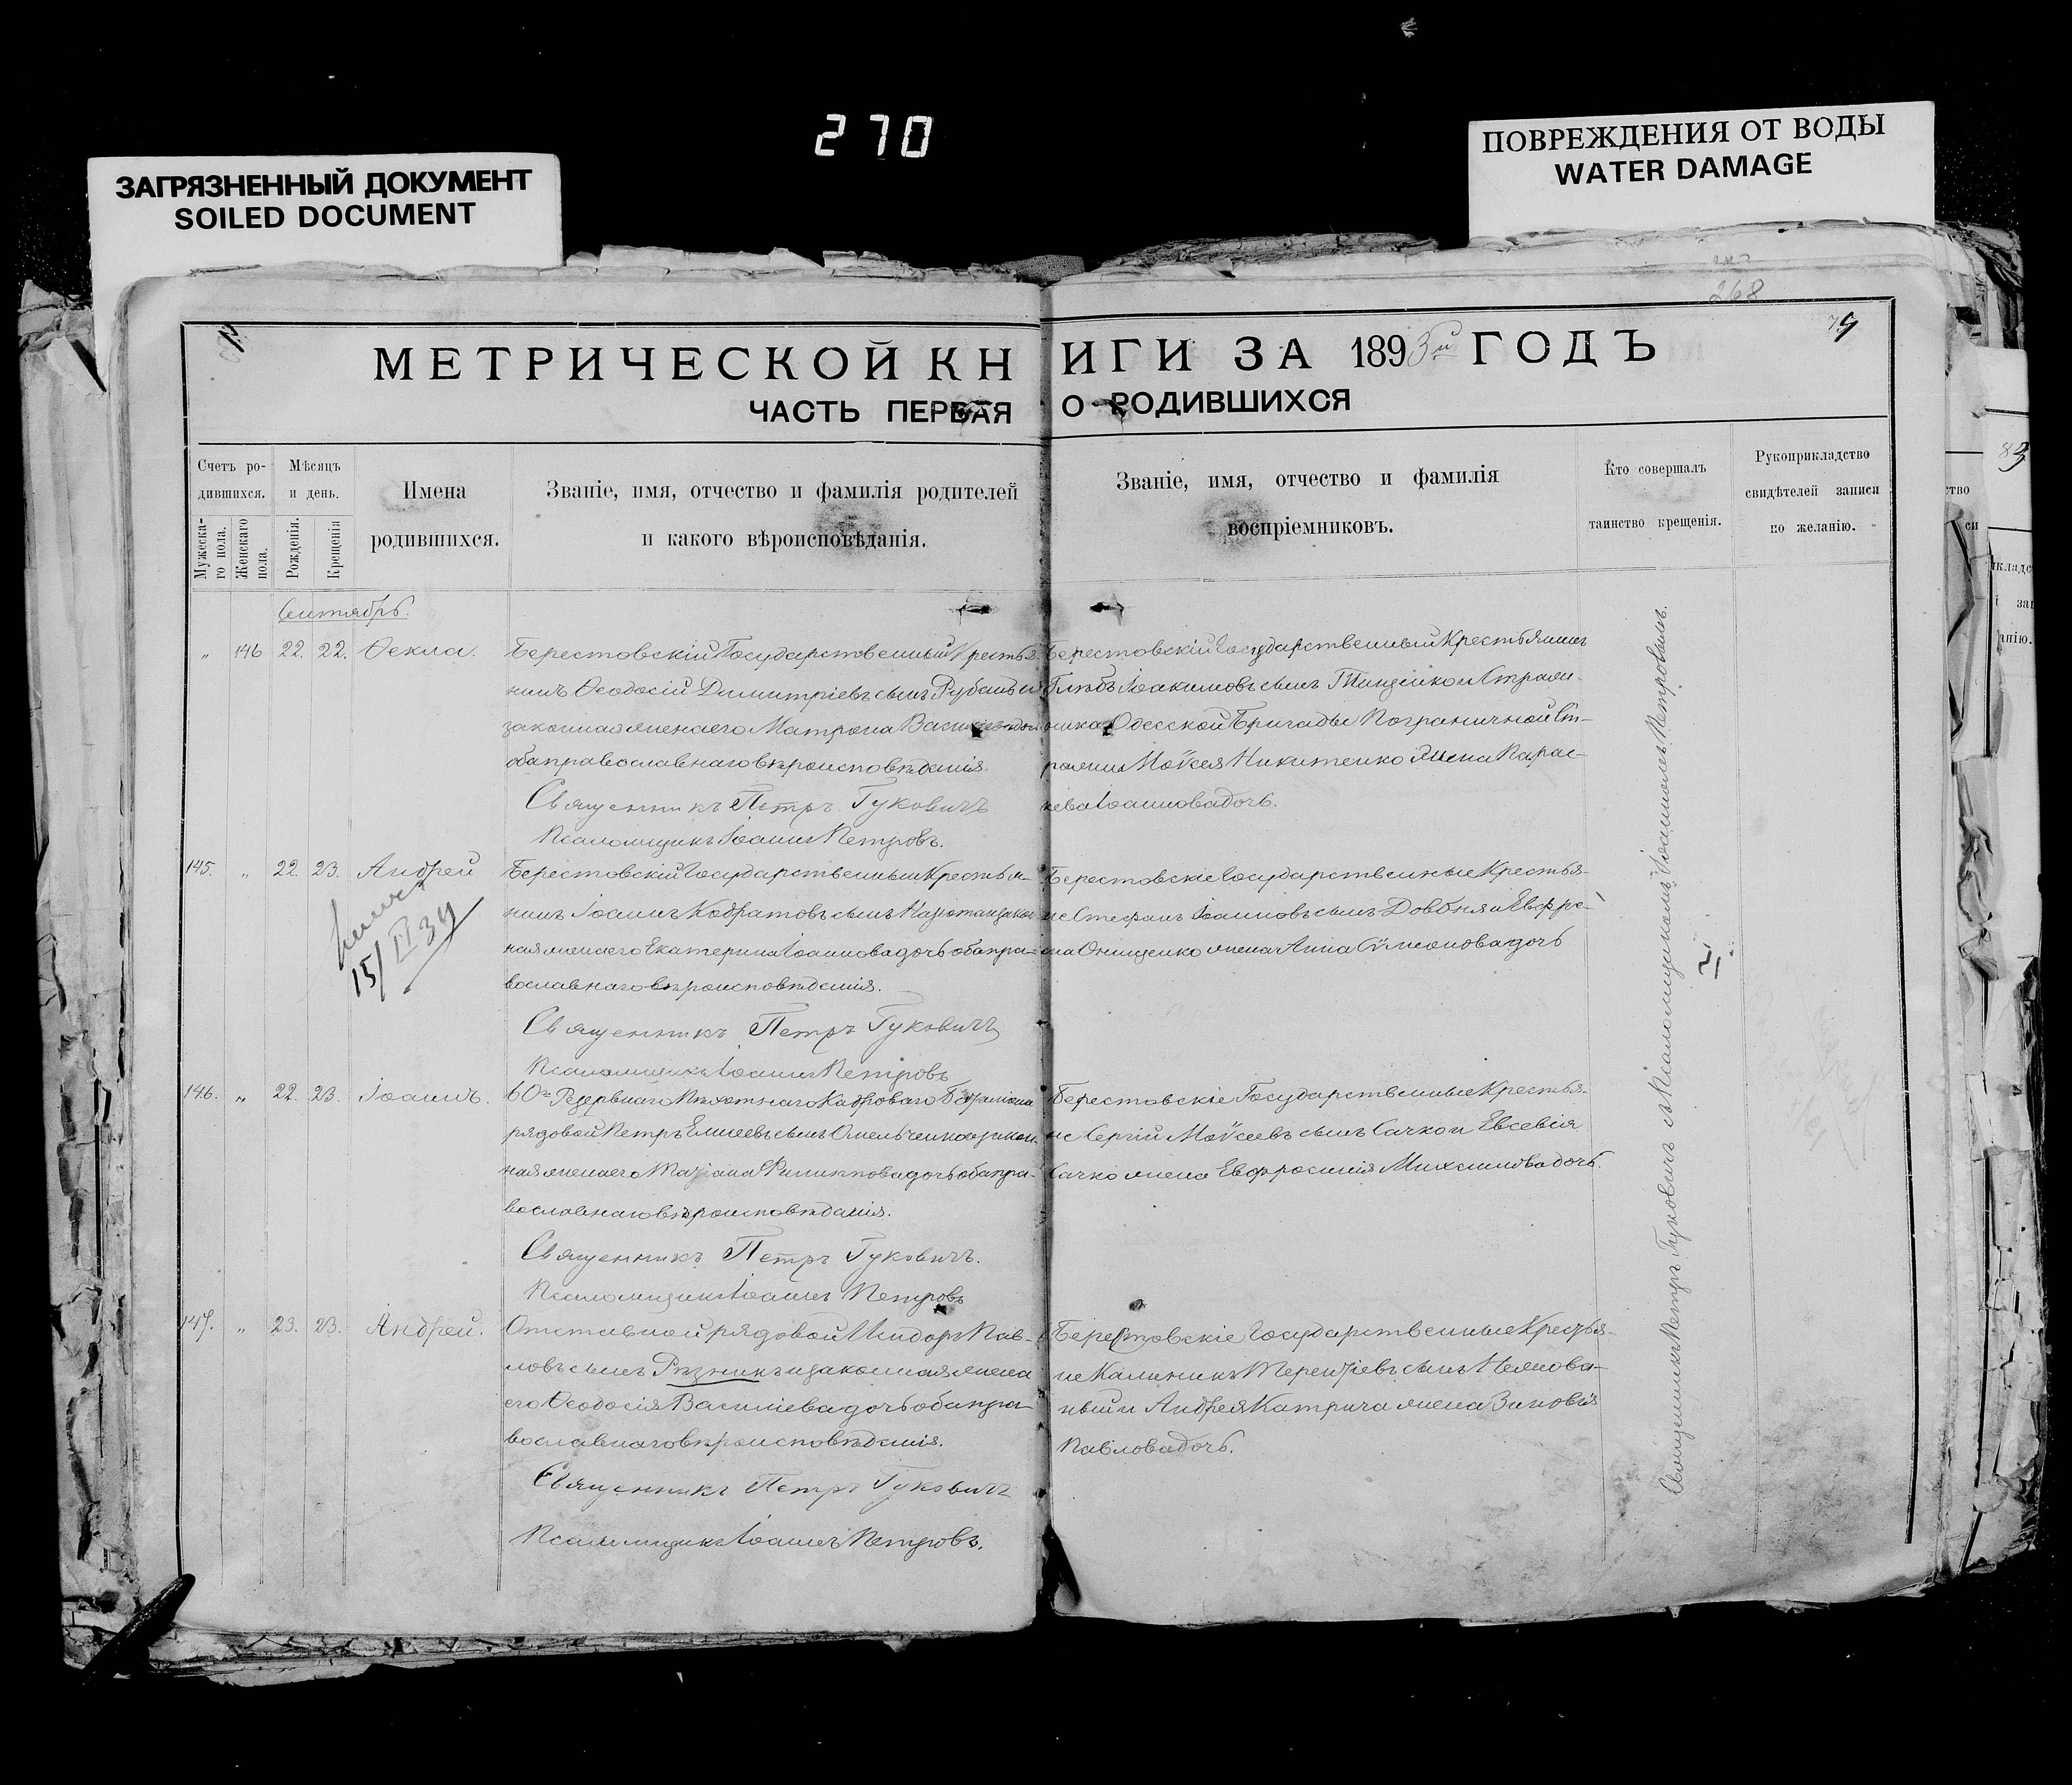 270
ЗАГРЯЗНЕННЫЙ ДОКУМЕНТ
SOILED DOCUMENT
ПОВРЕЖДЕНИЯ ОТ ВОДЫ
WATER DAMAGE
268
МЕТРИЧЕСКОЙ КНИГИ ЗА 1893й ГОДЪ
ЧАСТЬ ПЕРВАЯ О РОДИВШИХСЯ
Счетъ ро-
дившихся.
Мужеска-
го пола.
Женскаго
пола.
Мѣсяцъ
и день.
Рожденія.
Крещенія
Имена
родившихся.
Званіе, имя, отчество и фамилія родителей
и какого вѣроисповѣданія.
Званіе, имя, отчество и фамилія
воспріемниковъ.
Кто совершалъ
таинство крещенія.
Рукоприкладство
свидѣтелей записи
по желанію.
Сентябрь.
" 146 22. 22. Ѳекла.
Берестовскій Государственный Крестья-
нинъ Ѳеодосій Димитріевъ сынъ Рубанъ и
законная жена его Матрона
оба православнаго вѣроисповѣданія.
Священникъ Петръ Гуковичъ
Псаломщикъ Іоаннъ Петровъ.
Берестовскій Государственный Крестьянинъ
Глѣбъ Іоакимовъ сынъ и Страж-
ника Одесской Бригады Пограничной Ст-
ражи Моѷсея Никитенко жена Парас-
кева Іоаннова дочь.
145. " 22. 23. Андрей
15/II 39
Берестовскій Государственный Крестья-
нинъ Іоаннъ Кодратовъ сынъ и закон-
ная жена его Екатерина Іоаннова дочь оба пра-
вославнаго вѣроисповѣданія.
Священникъ Петръ Гуковичъ
Псаломщикъ Іоаннъ Петровъ
Берестовскіе Государственные Крестья-
не Стефанъ Іоанновъ сынъ Довбня и
Онищенко жена Анна Сѷмеонова дочь
146. " 22. 23. Іоаннъ.
60го Резервнаго Пѣхотнаго Кадроваго Баталіона
рядовой Петръ Елисеевъ сынъ Омельченко и закон-
ная жена его Татіана Филиппова дочь оба пра-
вославнаго вѣроисповѣданія.
Священникъ Петръ Гуковичъ.
Псаломщикъ Іоаннъ Петровъ
Берестовскіе Государственные Крестья-
не Сергій Моѷсеевъ сынъ Сачко и Евсевія
Сачко жена Евфросинія Михаилова дочь.
147. " 23. 23. Андрей.
Отставной рядовой Исидоръ Пав-
ловъ сынъ Рѣзникъ и законная жена
его Ѳеодосія Василіева дочь оба пра-
вославнаго вѣроисповѣданія.
Священникъ Петръ Гуковичъ
Псаломщикъ Іоаннъ Петровъ.
Берестовскіе Государственные Крестья-
не Калиникъ Терентіевъ сынъ
и Андрея Катрича жена Зиновія
Павлова дочь.
Священникъ Петръ Гуковичъ съ Псаломщикомъ Іоанномъ Петровымъ.
83